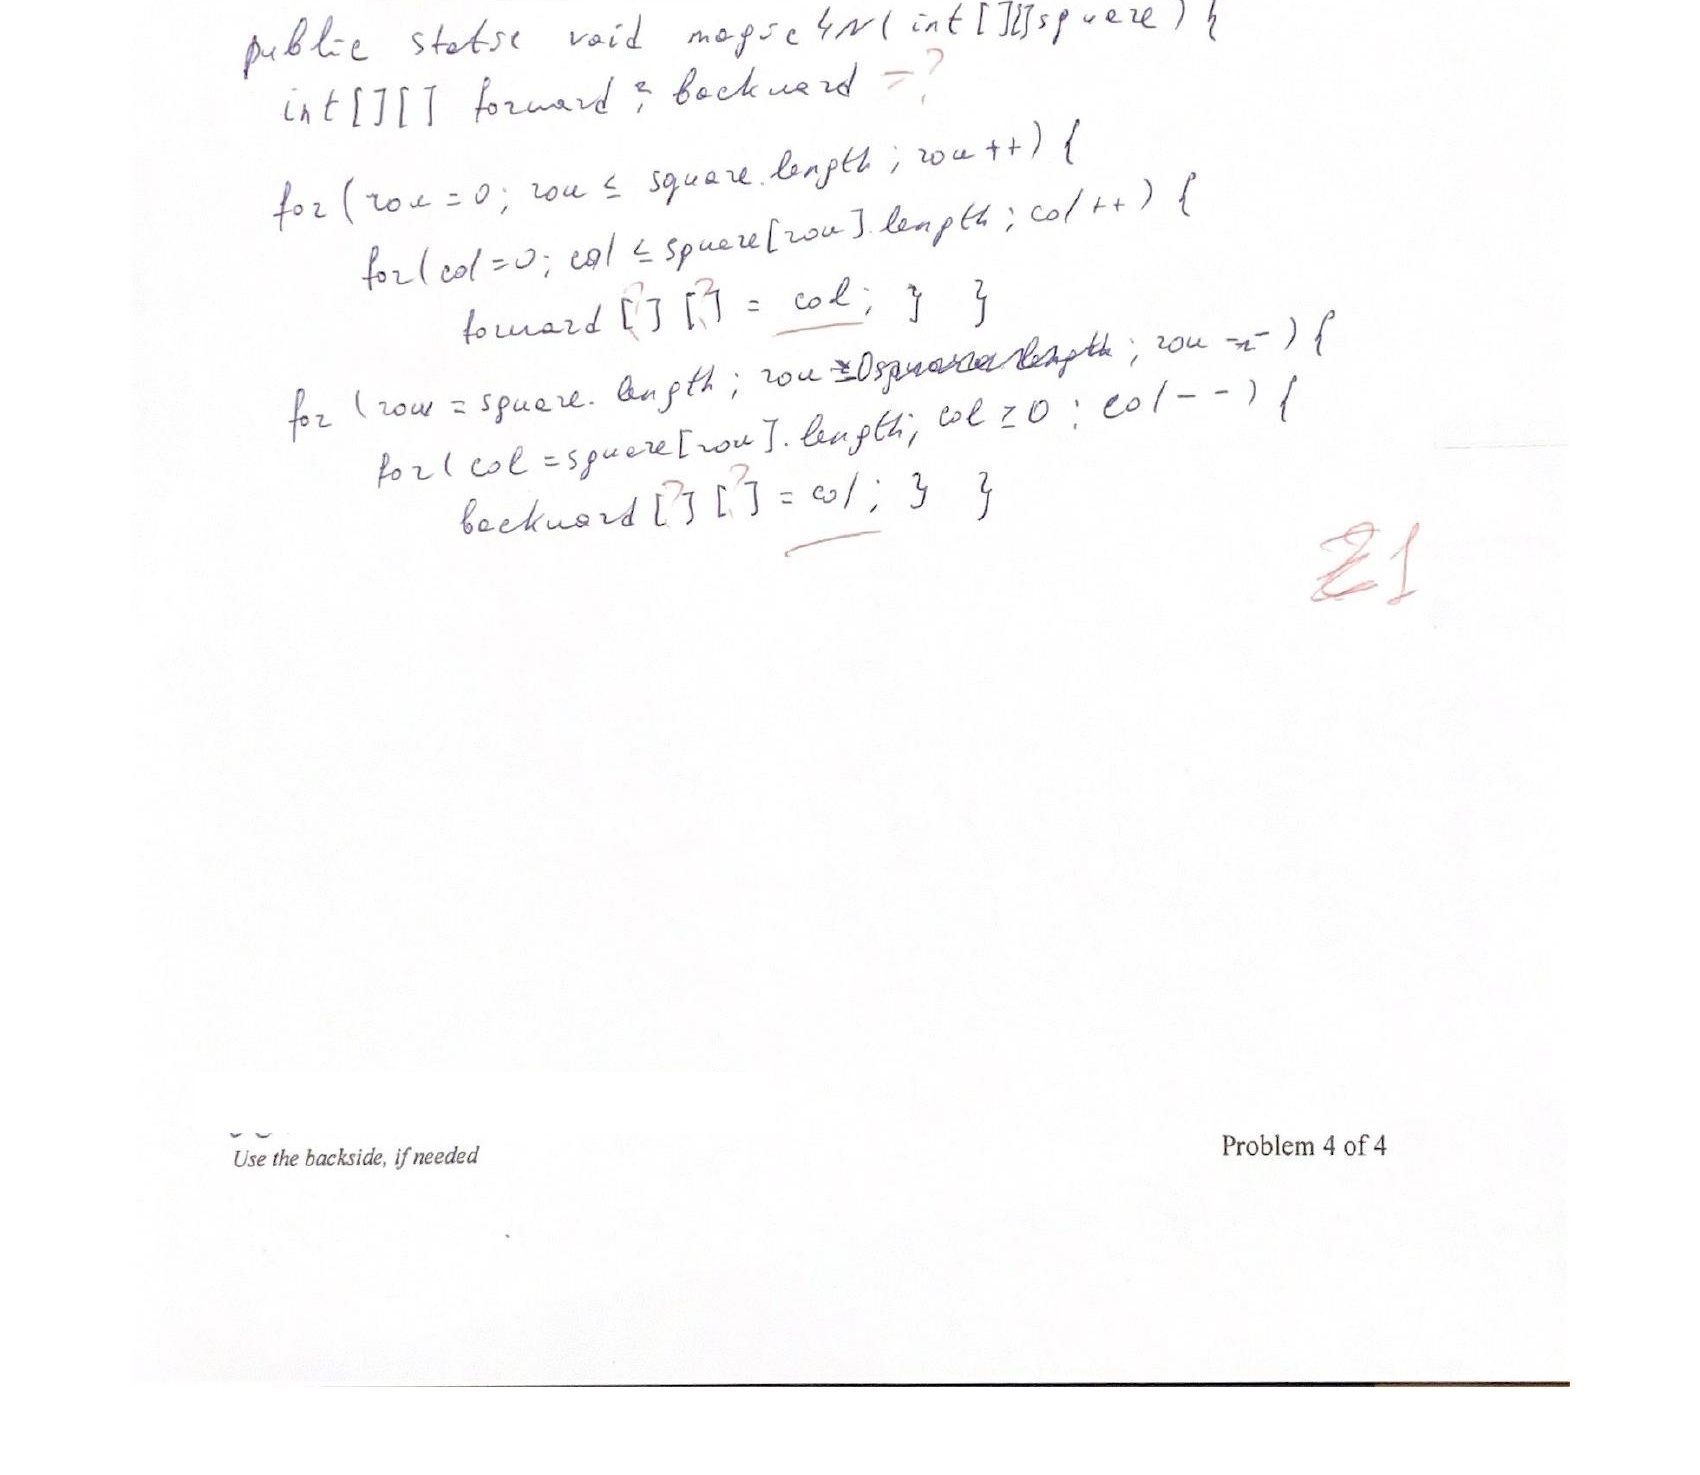 public static void magic4N(int[][]square) {
int[][] forward ; backward = ?
for(row=0; row ≤ square.length; row++) {
for(col=0; col ≤ square[row].length; col++) {
forward [?] [?] = col; } }
for (row = square.length; row ≥0 ; row --) {
for( col =square[row].length; col ≥ 0 ; col--) {
backward [?] [?] = col; } }
21
Use the backside, if needed
Problem 4 of 4